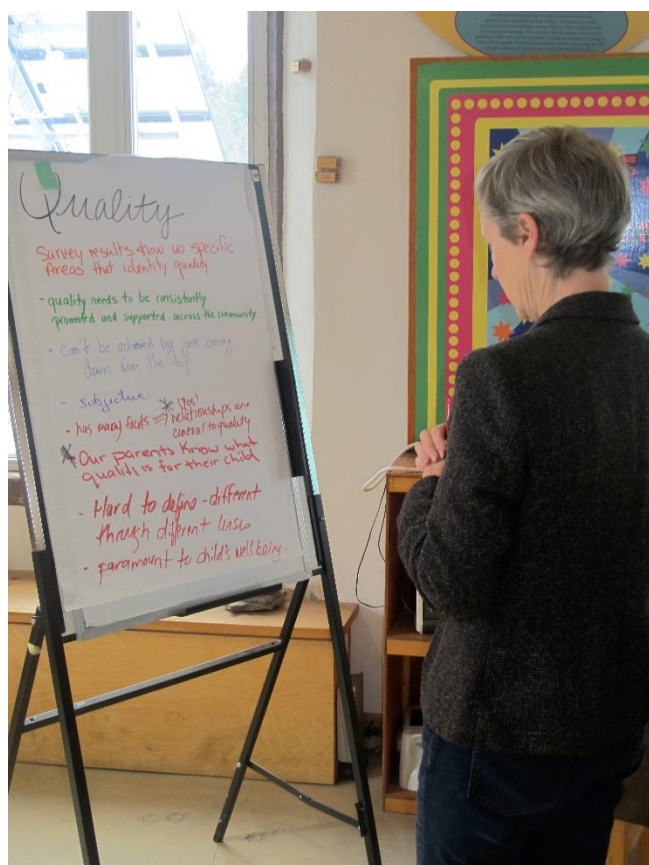 Quality
Survey results show us specific
Areas that identity quality
- quality needs to be consistently
promoted and supported accross the community
• Can't be achieved by just coming
down from the top
- subjective
(Yes!)
- has many facets => relationships are
central to quality
* Our parents Know what
quality is for their child
- Hard to define - different
through different lenses
- paramount to child's wellbeing.